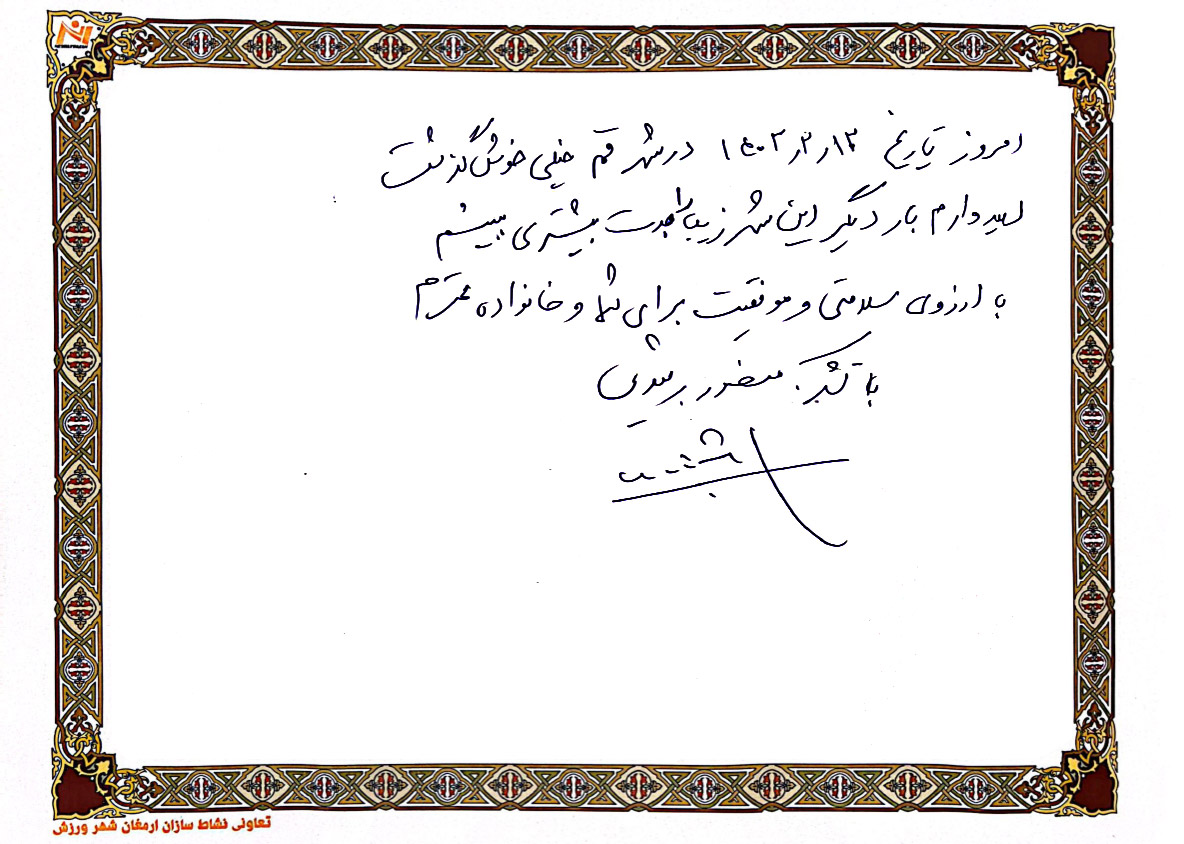 امروز تاریخ ۱۴۰۲٫۲٫۱۲ در شهر قم خیلی خوش گذشت
امیدوارم بار دیگر این شهر زیبا را بمدت بیشتری ببینم
با ارزوی سلامتی و موفقیت برای شما و خانواده محترم
با تشکر
تعاونی نشاط سازان ارمغان شهر ورزش